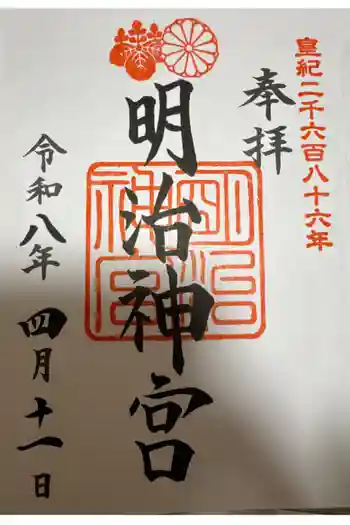 皇紀二千六百八十六年
奉拝
明治神宮
明治神宮
令和八年 四月十一日